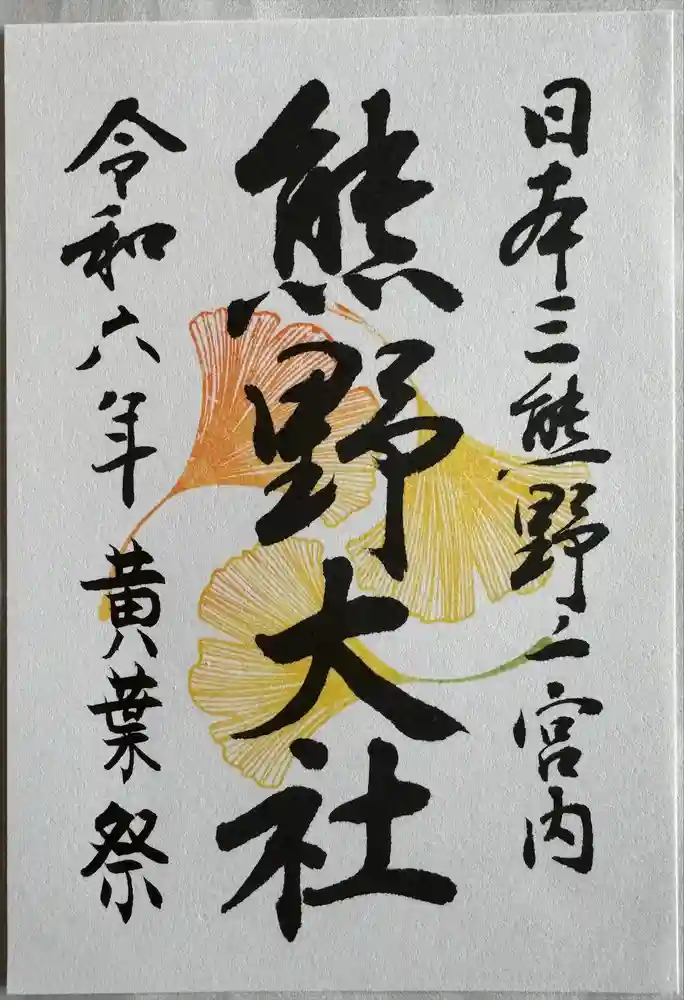 日本三熊野上宮内
熊野大社
令和六年 黄葉祭